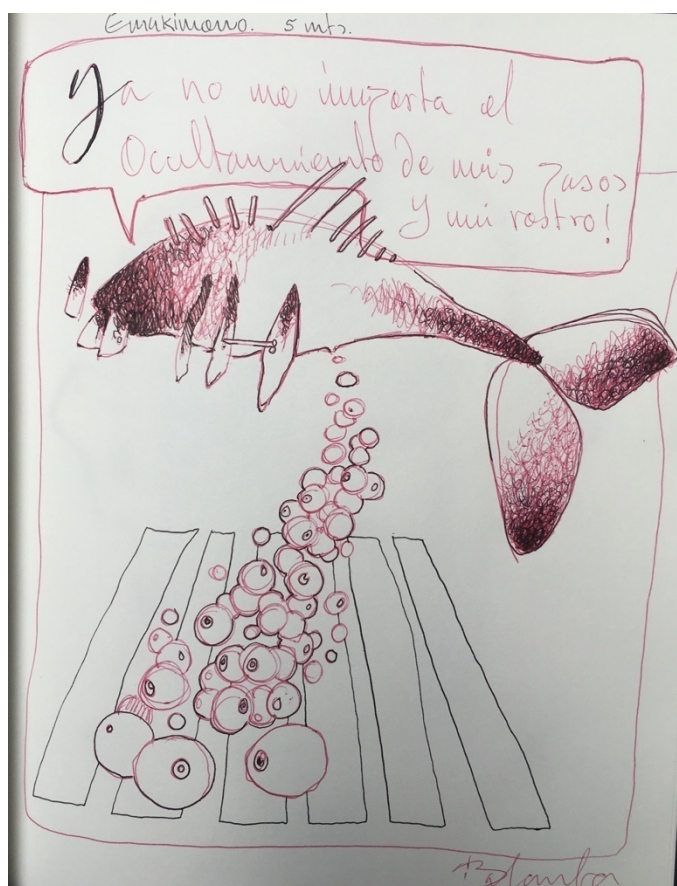 Emakimono. 5 mts.
Ya no me importa el
Ocultamiento de mis pasos
y mi rostro!